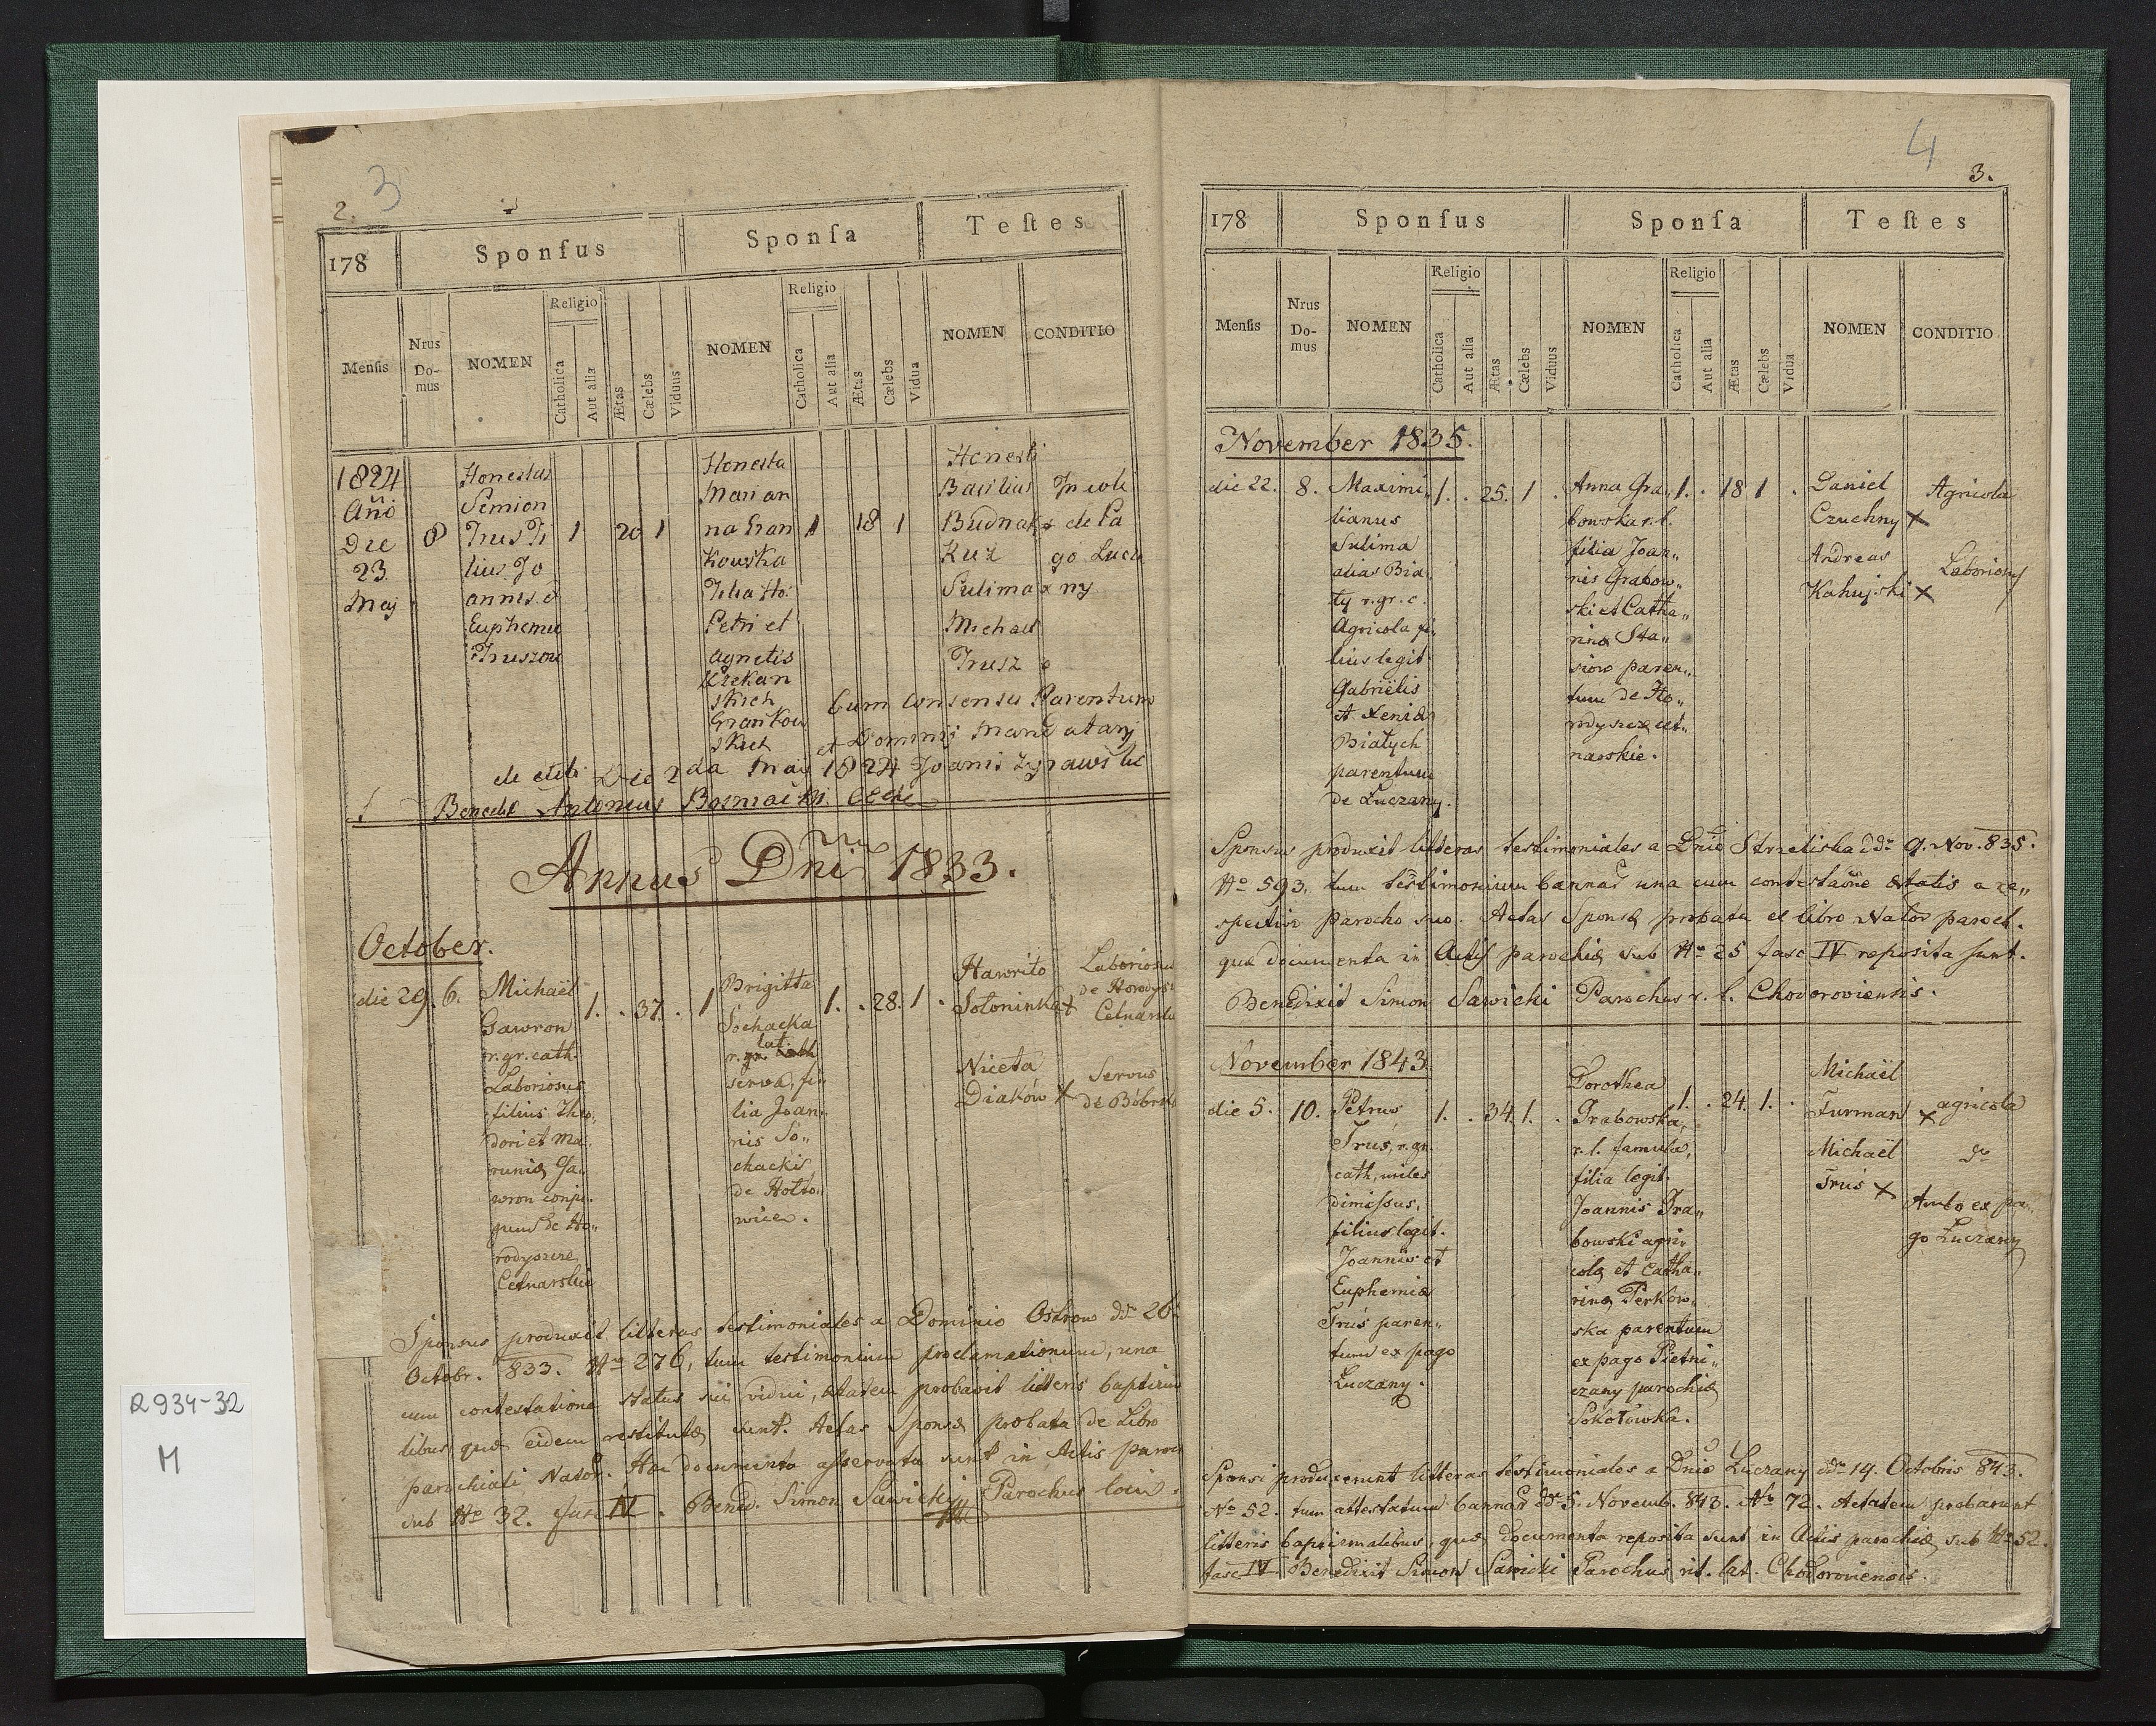 2.
3
178
Sponſus
Sponſa
Teſtes
Menſis
Nrus Do-mus
NOMEN
Religio
Catholica
Aut alia
Ætas
Cælebs
Viduus
NOMEN
Religio
Catholica
Aut alia
Ætas
Cælebs
Vidua
NOMEN
CONDITIO
1824
Año
Die
23
Maj
8
Honestus
Semion
Trus Fi
lius Jo
annis &
Euphemie
Truszow
1
20
1
Honesta
Marian
na Gran
Kowska
Filia Ho:
Petri et
Agnetis
skich
Grankow
skich
1
18
1
Honesti
Basilius
Budnak x
Kuz
Sulima x
Michael
Trusz
Incoli
de Pa
go Lucz
ny
Cum consensu Parentum
et Dominij Mandatarij
Die 2da Maij 1824 Joanis
Benedix Antonius
Annus Dni 1833.
October.
die 29.
6.
Michaël
Gawron
r. gr. cath.
Laboriosus
filius Theo„
dori et Ma„
runiæ Ga„
wron conju„
gum de Ho„
rodyszcze
Cetnarskie
1.
37.
1
Brigitta
Sochacka
r. lat.
serva, fi„
lia Joan„
nis So„
chacki,
de Hołto„
wice.
1.
28.
1.
Hawriło
Sołoninka +
Laboriosus
de Horodysz
Cetnarski
Niceta
Diaków x
Servus
de Bóbrka
Sponsus produxit litteras testimoniales a Dominio Ostrow ddo 26.
Octobr. 833. Nro 276, tum testimonium proclamationum, una
cum contestatione status sui vidui, ætatem probavit litteris baptisma
libus, quæ eidem restitutæ sunt. Aetas Sponsæ probata de Libro
parochiali Nator. Hæc documenta asservata sunt in Actis paroch
sub No 32. fasc IV. Bened. Simon Sawicki Parochus loci.
4
3.
178
Sponſus
Sponſa
Teſtes
Menſis
Nrus Do-mus
NOMEN
Religio
Catholica
Aut alia
Ætas
Cælebs
Viduus
NOMEN
Religio
Catholica
Aut alia
Ætas
Cælebs
Vidua
NOMEN
CONDITIO
November 1835.
die 22.
8.
Maximi„
lianus
Sulima
alias Bia„
ły r. gr. c.
Agricola fi„
lius legit.
Gabriëlis
et Xeniæ
Białych
parentum
de Łuczany.
1.
25.
1
Anna Gra„
bowska r. l.
filia Joan„
nis Grabow„
ski et Catha„
rina Sta„
siow paren„
tum de Ho„
rodyszcze cet„
narskie.
1.
18
1
Daniel
Czuchny x
Agricola
Andreas
Kahujski x
Laboriosy
Sponsus produxit litteras testimoniales a Dnio Strzeliska ddo 9. Nov. 835.
No 593. tum testimonium bannar una cum contestaõne ætatis a re„
spectivo parocho suo. Aetas Sponsæ probata ex libro Nator paroch.
quæ documenta in Actis parochiæ sub No 25 fasc IV reposita sunt.
Benedixit Simon Sawicki Parochus r. l. Chodoroviensis.
November 1843
die 5.
10.
Petrus
Trus, r. gr.
cath, miles
dimissus,
filius legit.
Joannis et
Euphemiæ
Trus paren„
tum ex pago
Łuczany.
1.
34.
1.
Dorothea
Grabowska,
r. l. famula,
filia legit.
Joannis Gra„
bowski agri„
colæ et Catha„
rinæ Perkow„
ska parentum
ex pago Pietni„
czany parochiæ
Sokołowka.
1.
24.
1.
Michaël
Furman x
agricola
Michaël
Trus x
do
Ambo ex pa„
go Łuczany
Sponsi produxerunt litteras testimoniales a Dnio Łuczany ddo 14. Octobris 843.
No 52. tum attestatum bannar ddo 5. Novemb. 843. No 72. Aetatem probarunt
litteris baptismalibus, quæ documenta reposita sunt in Actis parochiæ sub No 52.
fasc IV. Benedixit Simon Sawicki Parochus rit. lat. Chodoroviensis.
R 934-32
M